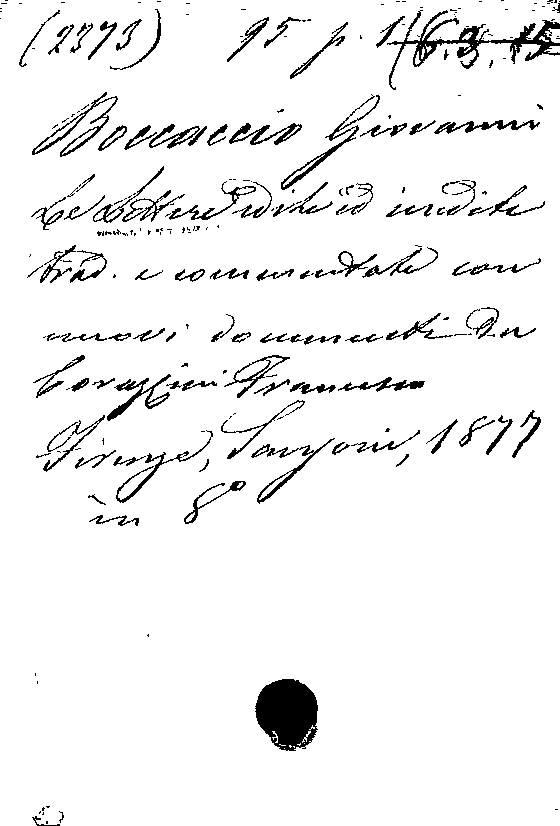 (2373) 95 p. 1 6.3.15
Boccaccio Giovanni
Le Lettere edite ed inedite
trad. e commentate con
nuovi documenti da
Corazzini Francesco
Firenze, Sansoni, 1877
in 8°